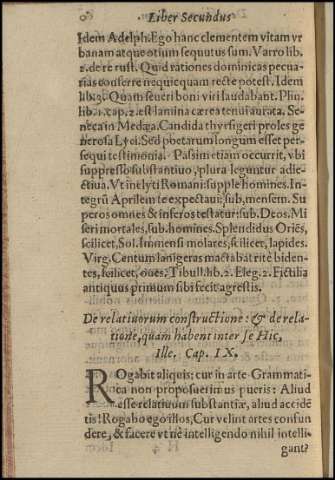 Liber Secundus
Idem Adelph. Ego hanc clementem vitam vr
banam atque otium sequutus sum. Varro lib.
2. de re rust. Quid rationes dominicas pecua-
rias conferre nequicquam recte potest. Idem
lib. 3. Quam seueri boni viri laudabant. Plin.
lib. 2. cap. 2. est lamina cærea tenui aurata. Se-
neca in Medæa. Candida thyrsigeri proles ge
nerosa Lyci. Sed poetarum longum esset per-
sequi testimonia. Passim etiam occurrit, vbi
suppresso substantiuo, plura leguntur adie-
ctiua. Vt inclyti Romani: supple homines. In-
tegrũ Aprilem te expectaui; sub, mensem. Su
peros omnes & inferos testatur: sub. Deos. Mi
seri mortales, sub. homines. Splendidus Oriẽs,
scilicet, Sol. Immensi molares, scilicet, lapides.
Virg. Centum lanigeras mactabat ritè biden-
tes, scilicet, oues. Tibull. lib. 2. Eleg. 2. Fictilia
antiquus primum sibi fecit agrestis.
De relatiuorum constructione: & de rela-
tione, quam habent inter se Hic,
Ille. Cap. IX.
ROgabit aliquis: cur in arte Grammati-
ca non proposuerimus pueris: Aliud
esse relatiuum substantiæ, aliud accidẽ
tis! Rogabo ego illos, Cur velint artes confun
dere, & facere vt nè intelligendo nihil intelli-
gant?